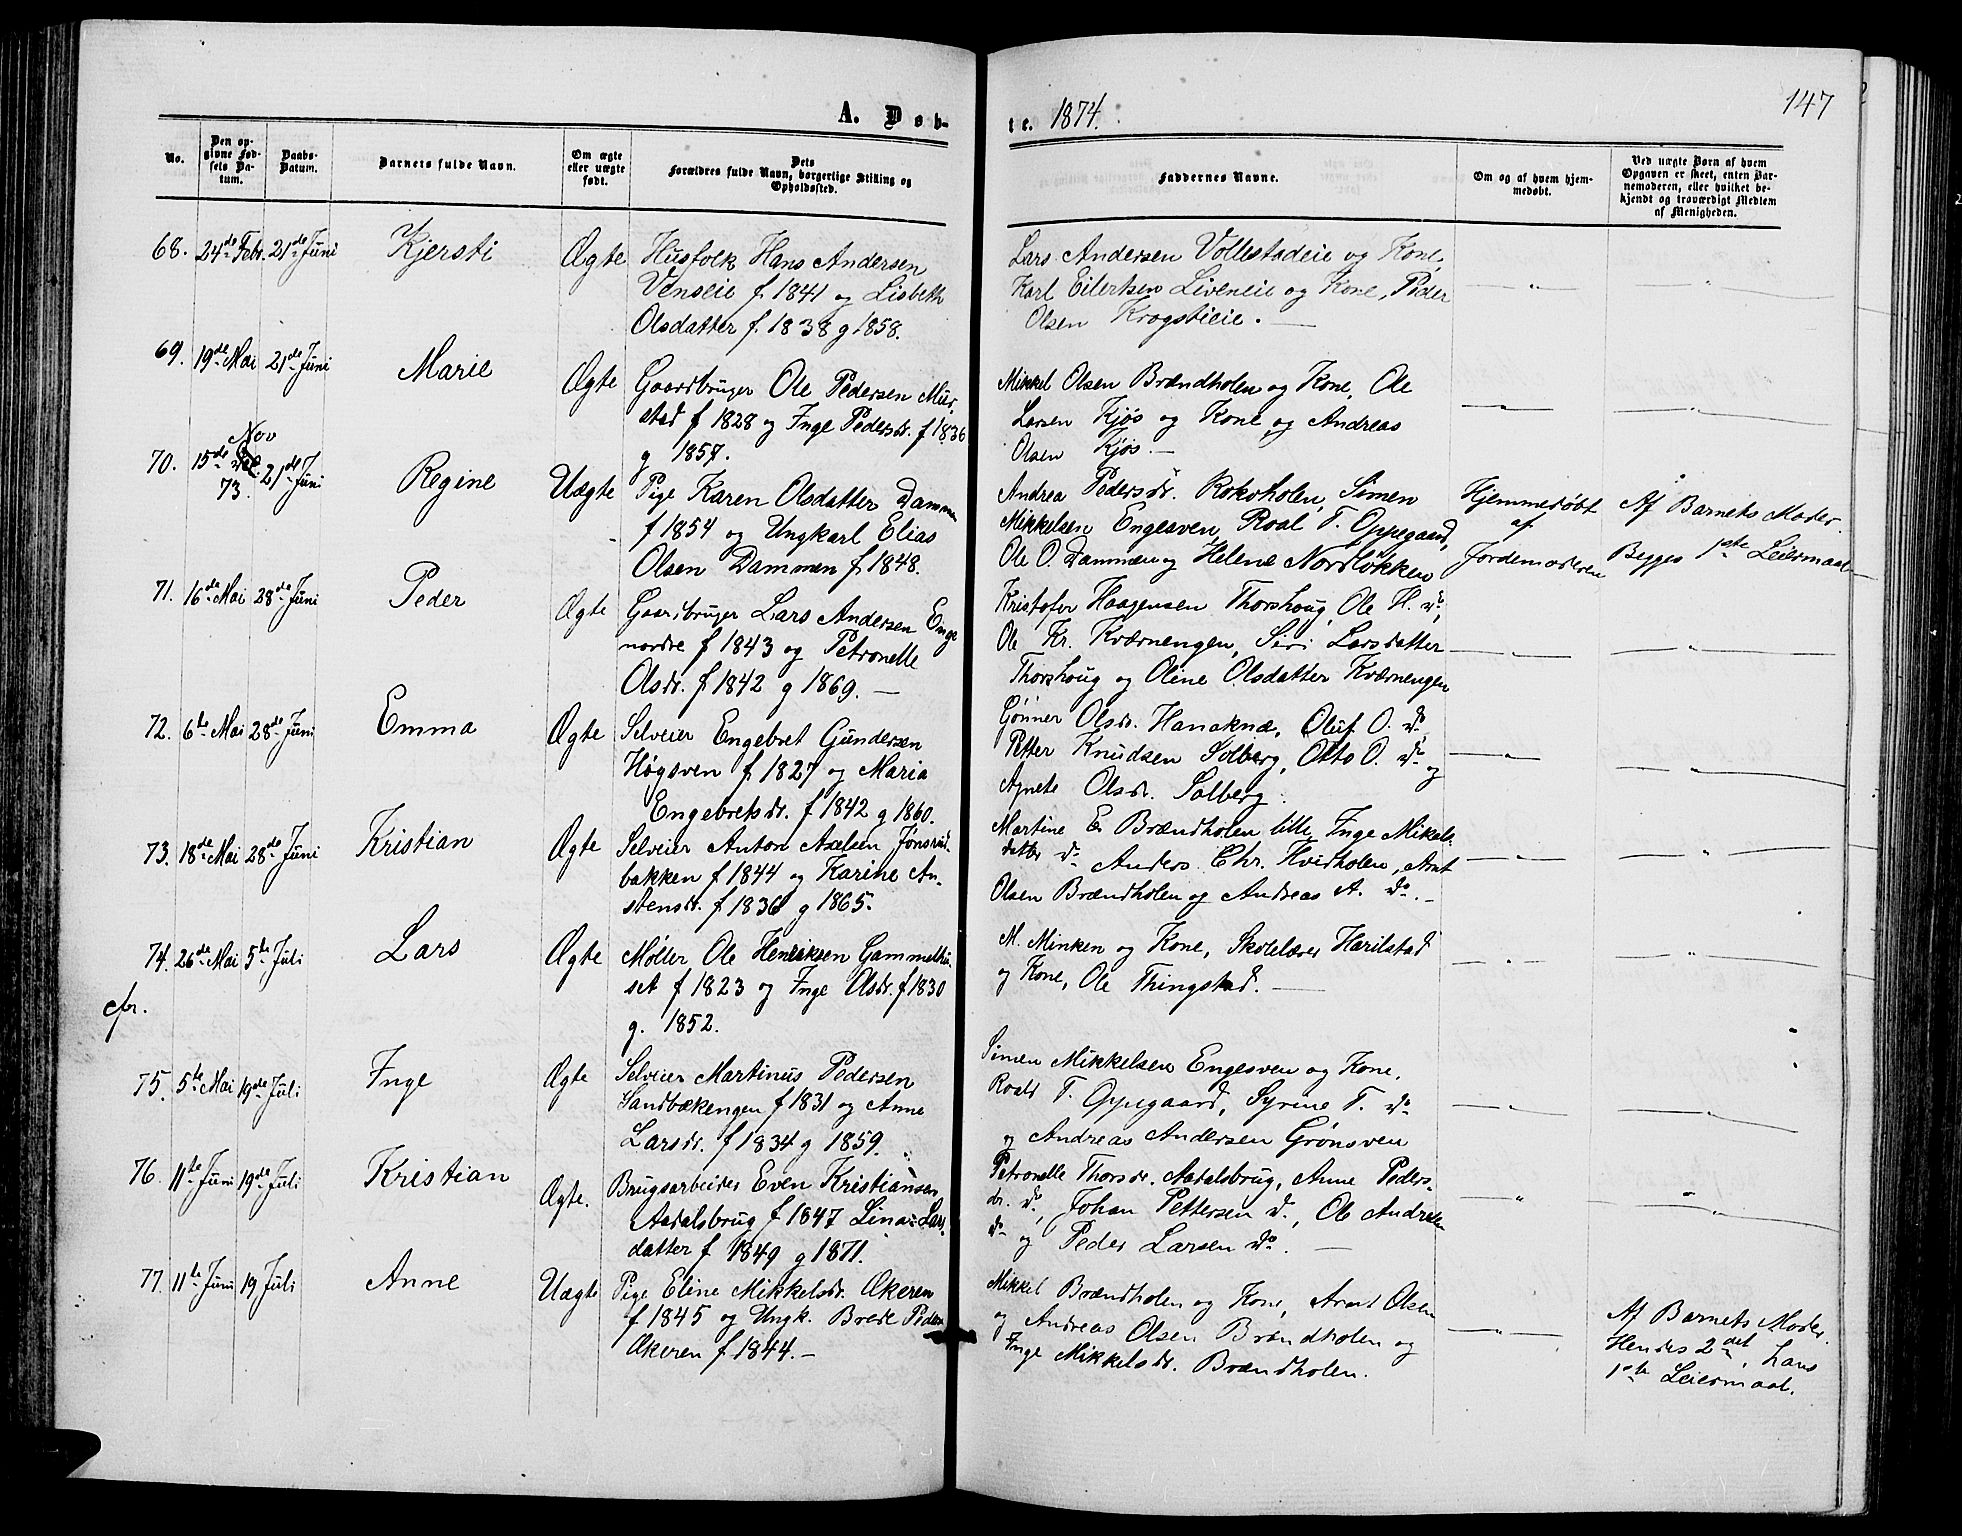 A. Døb-
te. 1874.
147
No.
Den op-
givne Fød-
sels Da-
tum.
Daabs-
Datum.
Barnets fulde Navn.
Om ægte
eller uægte
født.
Dets
Forældres fulde Navn, borgerlige Stilling og
Opholdssted.
Faddernes Navne.
Om og af hvem hjem-
medøbt.
Ved uægte Børn af hvem
Opgaven er skeet, enten Bar-
nemoderen, eller hvilket be-
kjendt og troværdigt Medlem
af Menigheden.
68. 24de Febr. 21de Juni Kjersti Ægte Husfolk Hans Andersen
Venseie f 1841 og Lisbeth
Olsdatter f. 1838 g 1858.
Lars Andersen Vollestadeie og Kone,
Karl Eilertsen Liveneie og Kone, Peder
Olsen Krogstieie. —
69. 19de Mai 21de Juni Marie Ægte Gaardbruger Ole Pedersen Mur-
stad f 1828 og Inge Pedersdr. f 1836
g 1857.
Mikkel Olsen Brændholen og Kone, Ole
Larsen Kjøs og Kone og Andreas
Olsen Kjøs. —
70. 15de Nov
73. 21de Juni Regine Uægte Pige Karen Olsdatter Dammen
f 1854 og Ungkarl Elias
Olsen Dammen f 1848.
Andrea Pedersdr. Rokoholen, Simen
Mikkelsen Engesven, Roal T. Oppegaard,
Ole O. Dammen og Helene Nordløkken
Hjemmedøbt
af
Jordemoderen
Af Barnets Moder.
Begges 1ste Leiermaal
71. 16de Mai 28de Juni Peder Ægte Gaardbruger Lars Andersen Enge
nordre f 1843 og Petronelle
Olsdr. f 1842 g 1869. —
Kristofer Haagensen Thorshoug, Ole H. do,
Ole Kr. Kværnengen, Siri Larsdatter
Thorshoug og Oline Olsdatter Kværnengen
72. 6te Mai 28de Juni Emma Ægte Selveier Engebret Gundersen
Høgsven f 1827 og Maria
Engebretsdr. f 1842 g 1860.
Gønner Olsdr. Hanaknæ, Oluf O. do
Petter Knudsen Solberg, Otto O. do og
Agnete Olsdr. Solberg.
73. 18de Mai 28de Juni Kristian Ægte Selveier Anton Axelsen Jønsrud-
bakken f 1844 og Karine An-
stensdr. f 1836 g 1865.
Martine E. Brændholen lille, Inge Mikels-
datter do Anders Chr. Hvidholen, Arnt
Olsen Brændholen og Andreas A. do. —
74. 26de Mai 5te Juli Lars Ægte Møller Ole Henriksen Gammelhu-
set f 1823 og Inge Olsdr. f 1830
g. 1852.
cfr.
M. Minken og Kone, Skolelærer Harilstad
og Kone, Ole Thingstad. —
75. 5te Mai 19de Juli Inge Ægte Selveier Martinus Pedersen
Sandbækengen f 1831 og Anne
Larsdr. f 1834 g 1859.
Simen Mikkelsen Engesven og Kone,
Roald T. Oppegaard, Syrine T. do
og Andreas Andersen Grønsven
76. 11te Juni 19de Juli Kristian Ægte. Brugsarbeider Even Kristiansen
Aadalsbrug f 1847 Lina Lars-
datter f 1849 g 1871.
Petronelle Thorsdr. Aadalsbrug, Anne Peders-
dr. do, Johan Pettersen do, Ole Andersen
do og Peder Larsen do. —
77. 11te Juni 19 Juli Anne Uægte Pige Eline Mikkelsdr. Økeren
f 1845 og Ungk. Brede Peders.
Økeren f 1844. —
Mikkel Brændholen og Kone, Arnt Olsen
og Andreas Olsen Brændholen og
Inge Mikkelsdr. Brændholen.
Af Barnets Moder.
Hendes 2det, hans
1ste Leiermaal.